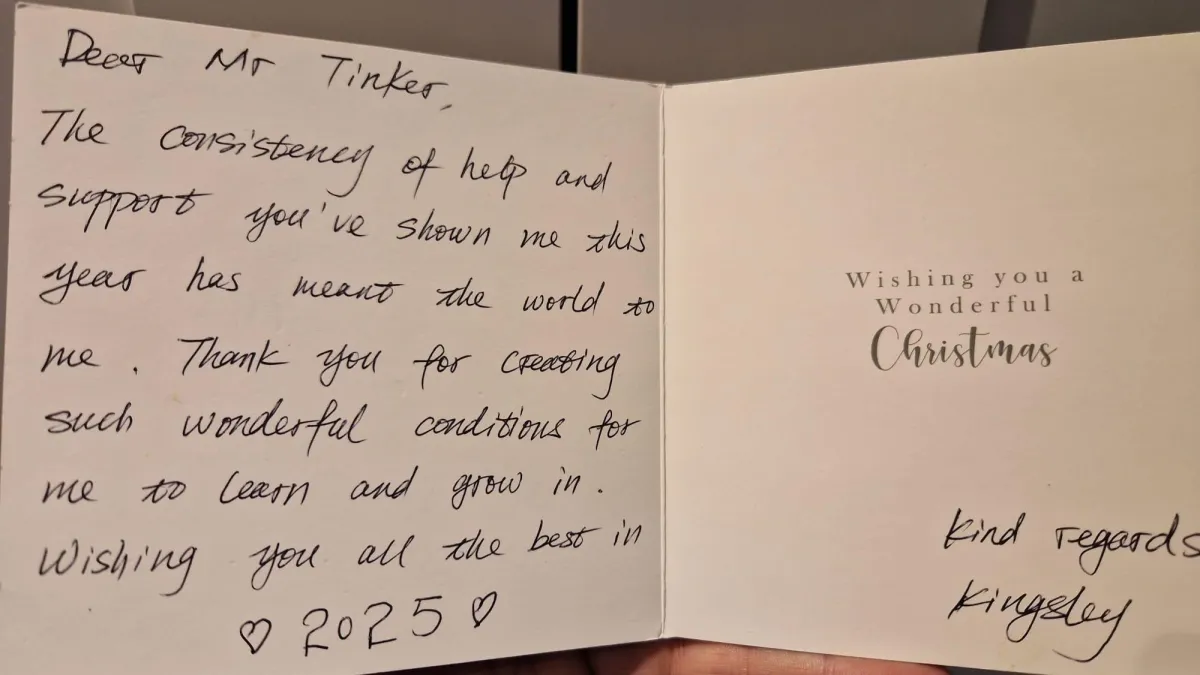 Dear Mr Tinker,
The consistency of help and
support you've shown me this
year has meant the world to
me. Thank you for creating
such wonderful conditions for
me to learn and grow in.
Wishing you all the best in
♡ 2025 ♡
Wishing you a
Wonderful
Christmas
Kind regards
Kingsley